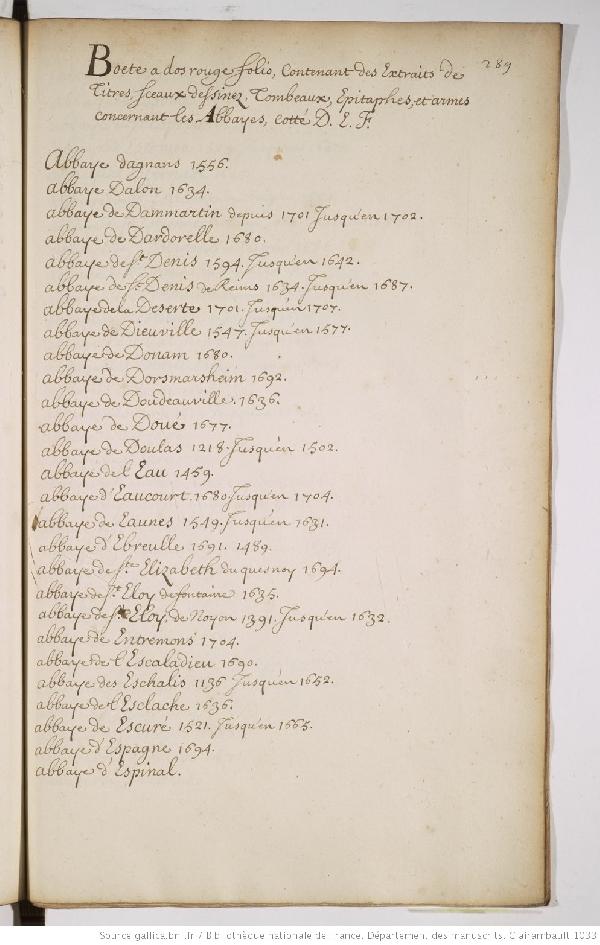 289
Boete a dos rouge folio, Contenant des Extraits de
Titres, sceaux dessinez, Tombeaux, Epitaphes, et armes
concernant les Abbayes, cotté D. E. F.
Abbaye dagnans 1556.
abbaye Dalon 1634.
abbaye de Dammartin depuis 1701 Jusqu'en 1702.
abbaye de Dardorelle 1680.
abbaye de st Denis 1594. Jusqu'en 1642.
abbaye de st Denis de Reims 1634. Jusqu'en 1687.
abbaye de la Deserte 1701. Jusqu'en 1707.
abbaye de Dieuville 1547. Jusqu'en 1577.
abbaye de Donam 1680.
abbaye de Dorsmarsheim 1692.
abbaye de Doudeauville. 1636.
abbaye de Doué 1677.
abbaye de Doulas 1218. Jusqu'en 1502.
abbaye de l'Eau 1459.
abbaye d'Eaucourt. 1680 Jusqu'en 1704.
abbaye de Eaunes 1549. Jusqu'en 1631.
abbaye d'Ebreulle 1691. 1489.
abbaye de ste Elizabeth du quesnoy 1694.
abbaye de st Eloy de fontaine 1635.
abbaye de st Eloy, de Noyon 1391. Jusqu'en 1632.
abbaye de Entremons 1704.
abbaye de l'Escaladieu 1690.
abbaye des Eschalis 1136 Jusqu'en 1652.
abbaye de l'Esclache 1636.
abbaye de Escuré 1521. Jusqu'en 1665.
abbaye d'Espagne 1694.
abbaye d'Espinal.
Source gallica.bnf.fr / Bibliothèque nationale de France. Département des manuscrits. Clairambault 1033